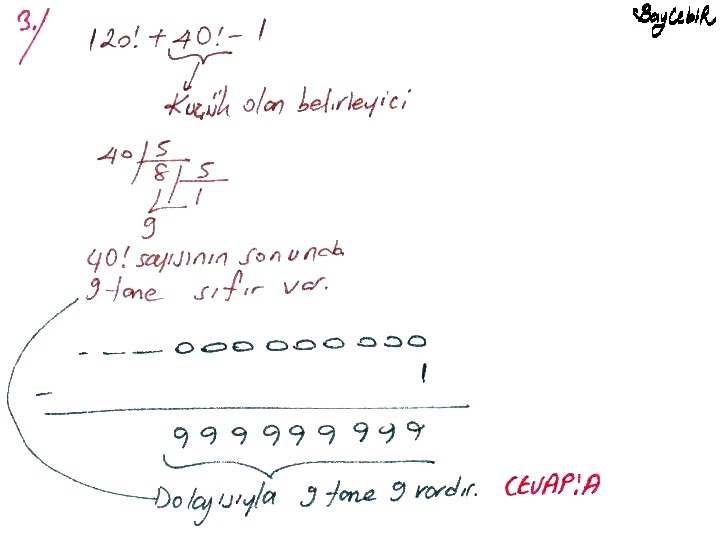 3./ 120! + 40! - 1
BayCebiR
Küçük olan belirleyici
40 | 5
8 | 5
1
9
40! sayısının sonunda
9 tane sıfır var.
- - - 000 000 000
1
-
9 9 9 9 9 9 9 9 9
Dolayısıyla 9 tane 9 vardır. CEVAP:A